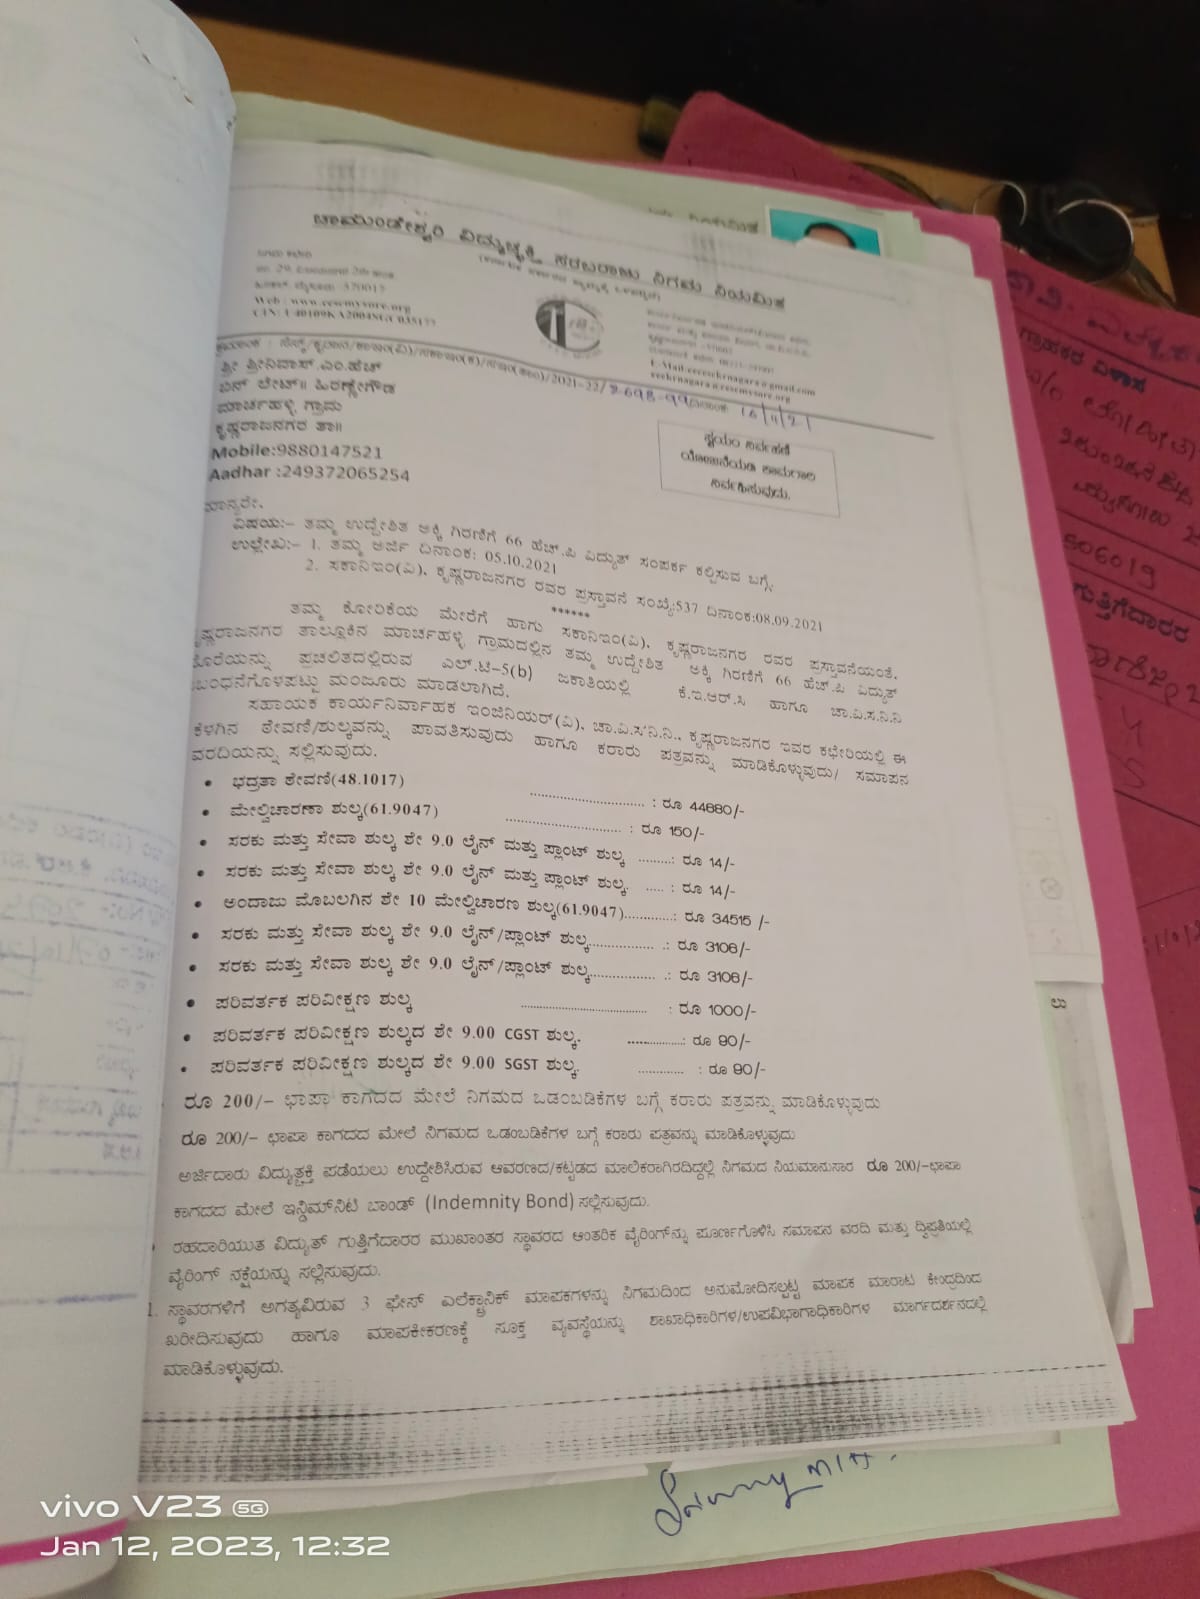 ಚಾಮುಂಡೇಶ್ವರಿ ವಿದ್ಯುಚ್ಛಕ್ತಿ ಸರಬರಾಜು ನಿಗಮ ನಿಯಮಿತ
Web : www.cescmysore.org
E-Mail:eeeseckrnagara@gmail.com
eeekrnagara@cescmysore.org
/2021-22/ 2698-99 ದಿನಾಂಕ: 16/11/21
ಶ್ರೀ ಶ್ರೀನಿವಾಸ್.ಎಂ.ಹೆಚ್
ಬಿನ್ ಲೇಟ್॥ ಹಿರಣ್ಣೇಗೌಡ
ಮಾರ್ಚಹಳ್ಳಿ ಗ್ರಾಮ
ಕೃಷ್ಣರಾಜನಗರ ತಾ॥
Mobile:9880147521
Aadhar :249372065254
ಸ್ವಯಂ ನಿರ್ವಹಣೆ
ಯೋಜನೆಯಡಿ ಕಾಮಗಾರಿ
ನಿರ್ವಹಿಸುವುದು.
ಮಾನ್ಯರೇ,
ವಿಷಯ:- ತಮ್ಮ ಉದ್ದೇಶಿತ ಅಕ್ಕಿ ಗಿರಣಿಗೆ 66 ಹೆಚ್.ಪಿ ವಿದ್ಯುತ್ ಸಂಪರ್ಕ ಕಲ್ಪಿಸುವ ಬಗ್ಗೆ.
ಉಲ್ಲೇಖ:- 1. ತಮ್ಮ ಅರ್ಜಿ ದಿನಾಂಕ: 05.10.2021
2. ಸಕಾನಿಇಂ(ವಿ), ಕೃಷ್ಣರಾಜನಗರ ರವರ ಪ್ರಸ್ತಾವನೆ ಸಂಖ್ಯೆ:537 ದಿನಾಂಕ:08.09.2021
******
ತಮ್ಮ ಕೋರಿಕೆಯ ಮೇರೆಗೆ ಹಾಗು ಸಕಾನಿಇಂ(ವಿ), ಕೃಷ್ಣರಾಜನಗರ ರವರ ಪ್ರಸ್ತಾವನೆಯಂತೆ,
ಕೃಷ್ಣರಾಜನಗರ ತಾಲ್ಲೂಕಿನ ಮಾರ್ಚಹಳ್ಳಿ ಗ್ರಾಮದಲ್ಲಿನ ತಮ್ಮ ಉದ್ದೇಶಿತ ಅಕ್ಕಿ ಗಿರಣಿಗೆ 66 ಹೆಚ್.ಪಿ ವಿದ್ಯುತ್
ಪ್ರಚಲಿತದಲ್ಲಿರುವ ಎಲ್.ಟಿ-5(b) ಜಕಾತಿಯಲ್ಲಿ ಕೆ.ಇ.ಆರ್.ಸಿ ಹಾಗೂ ಚಾ.ವಿ.ಸ.ನಿ.ನಿ
ಮಂಜೂರು ಮಾಡಲಾಗಿದೆ.
ಸಹಾಯಕ ಕಾರ್ಯನಿರ್ವಾಹಕ ಇಂಜಿನಿಯರ್(ವಿ), ಚಾ.ವಿ.ಸ.ನಿ.ನಿ., ಕೃಷ್ಣರಾಜನಗರ ಇವರ ಕಛೇರಿಯಲ್ಲಿ ಈ
ಕೆಳಗಿನ ಠೇವಣಿ/ಶುಲ್ಕವನ್ನು ಪಾವತಿಸುವುದು ಹಾಗೂ ಕರಾರು ಪತ್ರವನ್ನು ಮಾಡಿಕೊಳ್ಳುವುದು/ ಸಮಾಪನ
ವರದಿಯನ್ನು ಸಲ್ಲಿಸುವುದು.
• ಭದ್ರತಾ ಠೇವಣಿ(48.1017) .............................. : ರೂ 44880/-
• ಮೇಲ್ವಿಚಾರಣಾ ಶುಲ್ಕ(61.9047) .............................. : ರೂ 150/-
• ಸರಕು ಮತ್ತು ಸೇವಾ ಶುಲ್ಕ ಶೇ 9.0 ಲೈನ್ ಮತ್ತು ಪ್ಲಾಂಟ್ ಶುಲ್ಕ .........: ರೂ 14/-
• ಸರಕು ಮತ್ತು ಸೇವಾ ಶುಲ್ಕ ಶೇ 9.0 ಲೈನ್ ಮತ್ತು ಪ್ಲಾಂಟ್ ಶುಲ್ಕ. ..... : ರೂ 14/-
• ಅಂದಾಜು ಮೊಬಲಗಿನ ಶೇ 10 ಮೇಲ್ವಿಚಾರಣ ಶುಲ್ಕ(61.9047).............: ರೂ 34515 /-
• ಸರಕು ಮತ್ತು ಸೇವಾ ಶುಲ್ಕ ಶೇ 9.0 ಲೈನ್/ಪ್ಲಾಂಟ್ ಶುಲ್ಕ................. .: ರೂ 3106/-
• ಸರಕು ಮತ್ತು ಸೇವಾ ಶುಲ್ಕ ಶೇ 9.0 ಲೈನ್/ಪ್ಲಾಂಟ್ ಶುಲ್ಕ................. .: ರೂ 3106/-
• ಪರಿವರ್ತಕ ಪರಿವೀಕ್ಷಣ ಶುಲ್ಕ ................................. : ರೂ 1000/-
• ಪರಿವರ್ತಕ ಪರಿವೀಕ್ಷಣ ಶುಲ್ಕದ ಶೇ 9.00 CGST ಶುಲ್ಕ. ...............: ರೂ 90/-
• ಪರಿವರ್ತಕ ಪರಿವೀಕ್ಷಣ ಶುಲ್ಕದ ಶೇ 9.00 SGST ಶುಲ್ಕ. ............ : ರೂ 90/-
ರೂ 200/- ಛಾಪಾ ಕಾಗದದ ಮೇಲೆ ನಿಗಮದ ಒಡಂಬಡಿಕೆಗಳ ಬಗ್ಗೆ ಕರಾರು ಪತ್ರವನ್ನು ಮಾಡಿಕೊಳ್ಳುವುದು
ರೂ 200/- ಛಾಪಾ ಕಾಗದದ ಮೇಲೆ ನಿಗಮದ ಒಡಂಬಡಿಕೆಗಳ ಬಗ್ಗೆ ಕರಾರು ಪತ್ರವನ್ನು ಮಾಡಿಕೊಳ್ಳುವುದು
ಅರ್ಜಿದಾರು ವಿದ್ಯುತ್ಛಕ್ತಿ ಪಡೆಯಲು ಉದ್ದೇಶಿಸಿರುವ ಆವರಣದ/ಕಟ್ಟಡದ ಮಾಲಿಕರಾಗಿರದಿದ್ದಲ್ಲಿ ನಿಗಮದ ನಿಯಮಾನುಸಾರ ರೂ 200/-ಛಾಪಾ
ಕಾಗದದ ಮೇಲೆ ಇನ್ಡಿಮ್‌ನಿಟಿ ಬಾಂಡ್ (Indemnity Bond) ಸಲ್ಲಿಸುವುದು.
ರಹದಾರಿಯುತ ವಿದ್ಯುತ್ ಗುತ್ತಿಗೆದಾರರ ಮುಖಾಂತರ ಸ್ಥಾವರದ ಆಂತರಿಕ ವೈರಿಂಗ್‌ನ್ನು ಪೂರ್ಣಗೊಳಿಸಿ ಸಮಾಪನ ವರದಿ ಮತ್ತು ದ್ವಿಪ್ರತಿಯಲ್ಲಿ
ವೈರಿಂಗ್ ನಕ್ಷೆಯನ್ನು ಸಲ್ಲಿಸುವುದು.
1. ಸ್ಥಾವರಗಳಿಗೆ ಅಗತ್ಯವಿರುವ 3 ಫೇಸ್ ಎಲೆಕ್ಟ್ರಾನಿಕ್ ಮಾಪಕಗಳನ್ನು ನಿಗಮದಿಂದ ಅನುಮೋದಿಸಲ್ಪಟ್ಟ ಮಾಪಕ ಮಾರಾಟ ಕೇಂದ್ರದಿಂದ
ಖರೀದಿಸುವುದು ಹಾಗೂ ಮಾಪಕೀಕರಣಕ್ಕೆ ಸೂಕ್ತ ವ್ಯವಸ್ಥೆಯನ್ನು ಶಾಖಾಧಿಕಾರಿಗಳ/ಉಪವಿಭಾಗಾಧಿಕಾರಿಗಳ ಮಾರ್ಗದರ್ಶನದಲ್ಲಿ
ಮಾಡಿಕೊಳ್ಳುವುದು.
ಗ್ರಾಹಕರ ವಿಳಾಸ
ಗುತ್ತಿಗೆದಾರರ
vivo V23 5G
Jan 12, 2023, 12:32